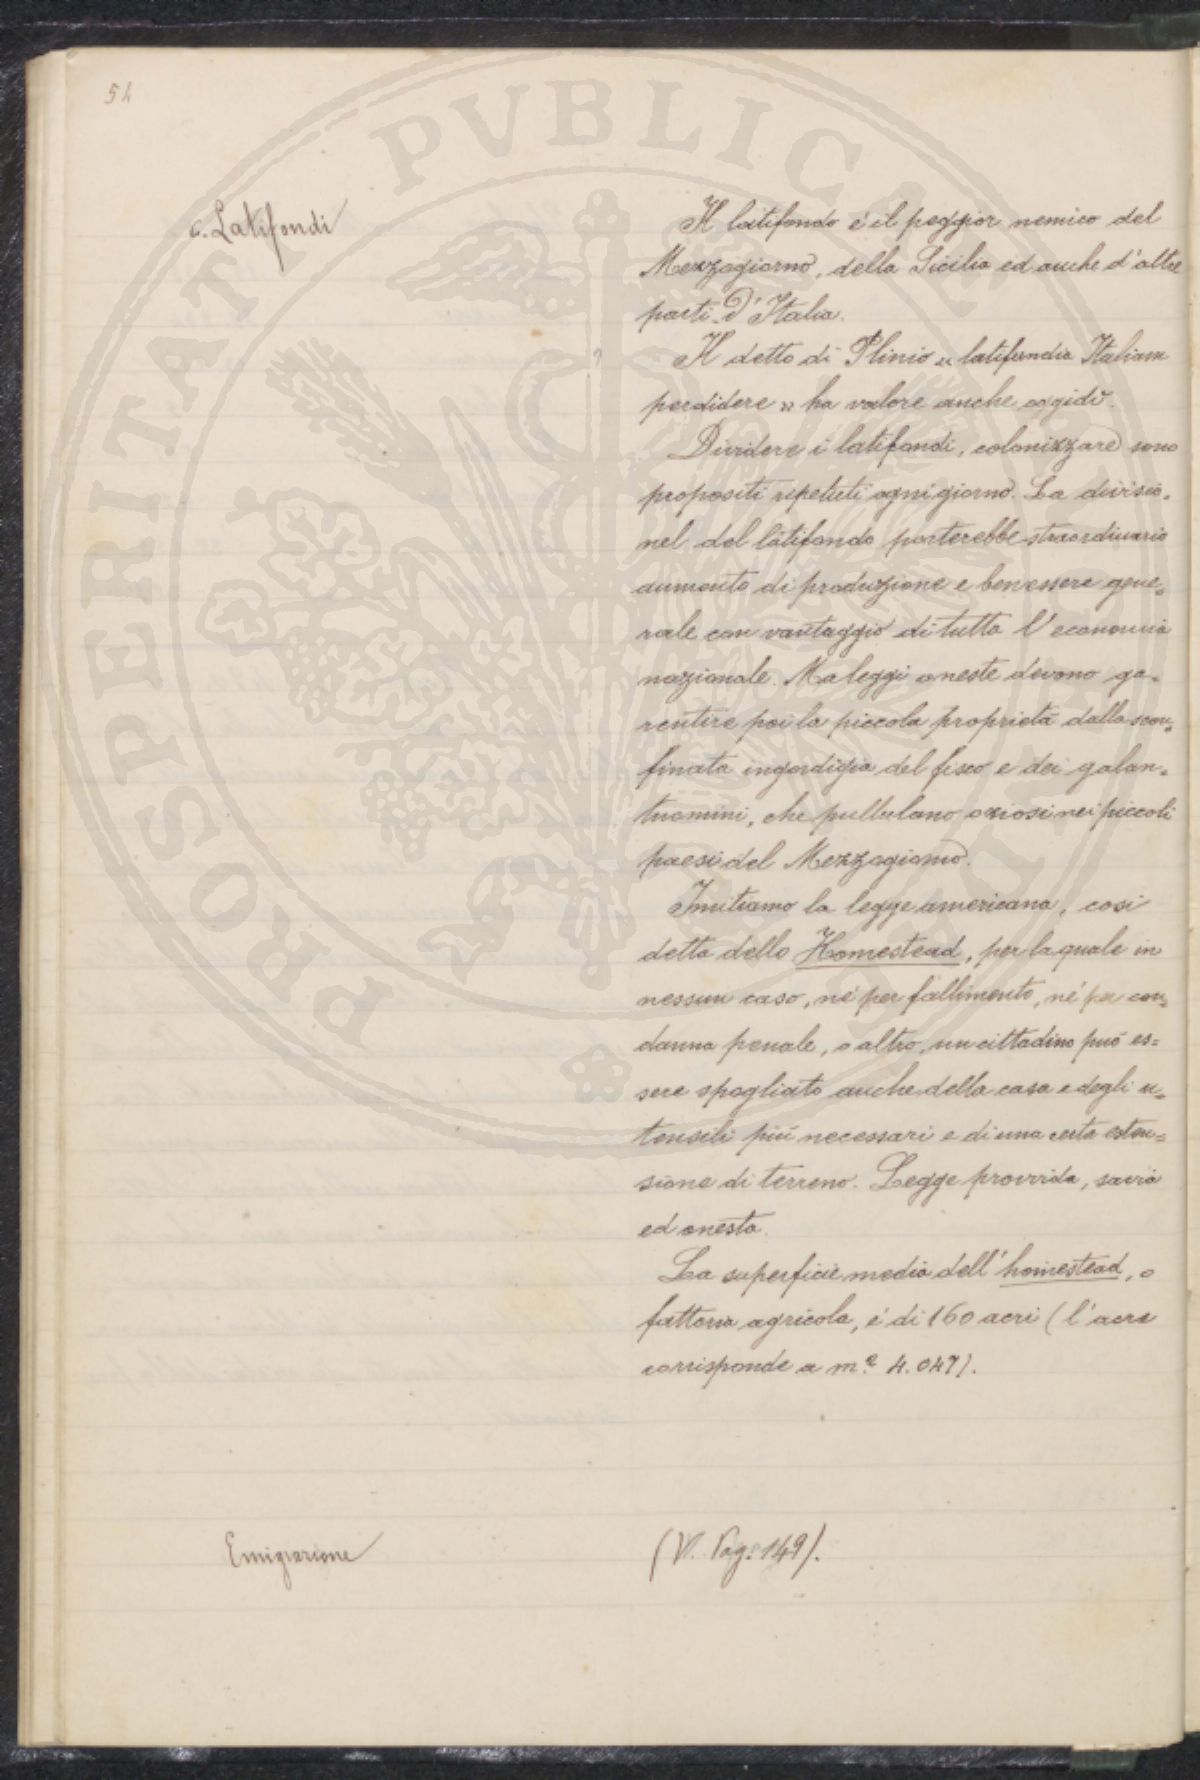 54
PROSPERITATI PVBLICAE
6. Latifondi
Il latifondo é il peggior nemico del
Mezzogiorno, della Sicilia ed anche d'altre
parti d'Italia.
Il detto di Plinio « latifundia Italiam
perdidere » ha valore anche oggidì.
Dividere i latifondi, colonizzare sono
propositi ripetuti ogni giorno. La divisio-
nel del latifondo porterebbe straordinario
aumento di produzione e benessere gene-
rale con vantaggio di tutta l'economia
nazionale. Ma leggi oneste devono ga-
rentire poi la piccola proprietá dalla scon-
finata ingordigia del fisco e dei galan-
tuomini, che pullulano oziosi nei piccoli
paesi del Mezzogiorno.
Imitiamo la legge americana, cosi
detta dello Homestead, per la quale in
nessun caso, né per fallimento, né per con-
danna penale, o altro, un cittadino puó es=
sere spogliato anche della casa e degli u-
tensili piú necessari e di una certa esten=
sione di terreno. Legge provvida, savia
ed onesta.
La superficie media dell'homestead, o
fattoria agricola, é di 160 acri (l'acre
corrisponde a m.q 4.047).
Emigrazione
(V. Pag. 149).